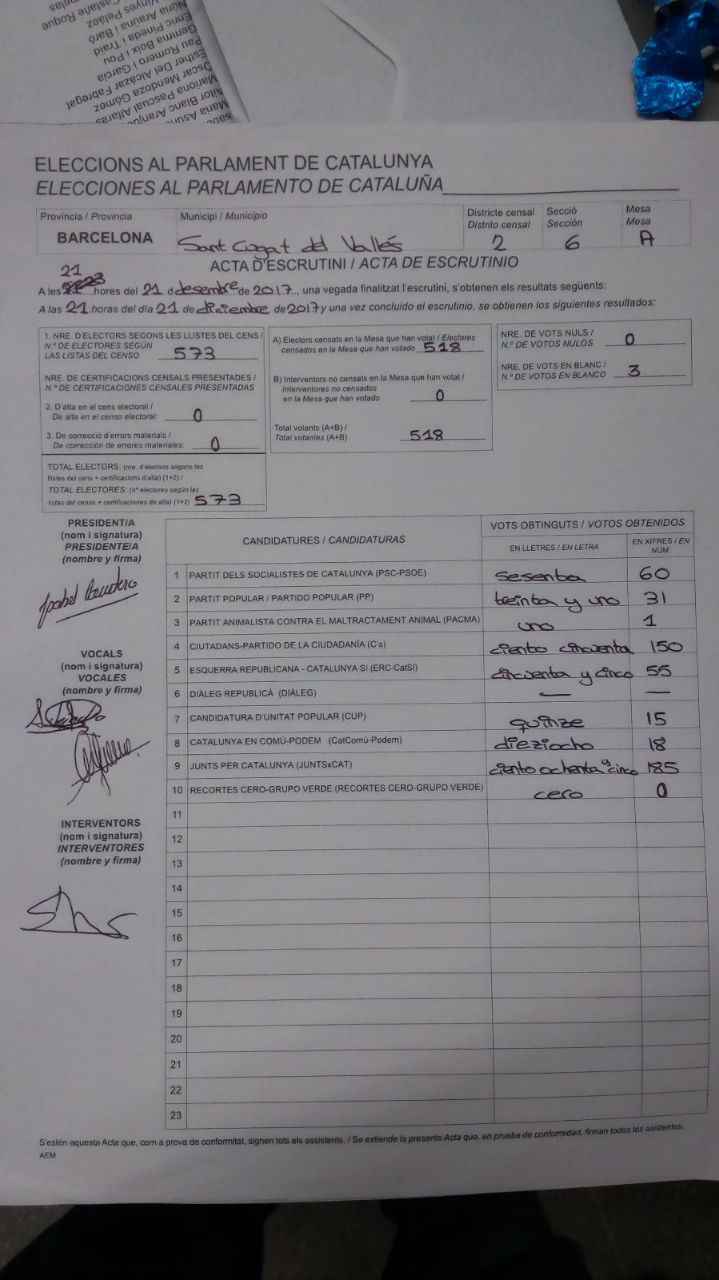 Castañe Roque
Vinyes Peláez
Núria Arauna i Baró
Enric Pineda i Traid
Gemma Boix i Pou
Pau Romero i García
Esther Del Alcázar Fabregat
Oscar Mendoza Gómez
Mariona Pascual Alfaras
Aitor Blanc
ELECCIONS AL PARLAMENT DE CATALUNYA
ELECCIONES AL PARLAMENTO DE CATALUÑA
Província / Provincia
Municipi / Municipio
Districte censal
Distrito censal
Secció
Sección
Mesa
Mesa
BARCELONA
Sant Cugat del Vallés
2
6
A
ACTA D'ESCRUTINI / ACTA DE ESCRUTINIO
21
A les hores del 21 d desembre de 2017, una vegada finalitzat l'escrutini, s'obtenen els resultats següents:
A las 21 horas del día 21 de diciembre de 2017 y una vez concluido el escrutinio, se obtienen los siguientes resultados:
1. NRE. D'ELECTORS SEGONS LES LLISTES DEL CENS /
N.º DE ELECTORES SEGÚN
LAS LISTAS DEL CENSO 573
NRE. DE CERTIFICACIONS CENSALS PRESENTADES /
N.º DE CERTIFICACIONES CENSALES PRESENTADAS
2. D'alta en el cens electoral /
De alta en el censo electoral: 0
3. De correcció d'errors materials /
De corrección de errores materiales: 0
TOTAL ELECTORS: (nre. d'electors segons les
llistes del cens + certificacions d'alta) (1+2) /
TOTAL ELECTORES: (nº electores según las
listas del censo + certificaciones de alta) (1+2) 573
A) Electors censats en la Mesa que han votat / Electores
censados en la Mesa que han votado 518
B) Interventors no censats en la Mesa que han votat /
Interventores no censados
en la Mesa que han votado 0
Total votants (A+B) /
Total votantes (A+B) 518
NRE. DE VOTS NULS /
N.º DE VOTOS NULOS 0
NRE. DE VOTS EN BLANC /
N.º DE VOTOS EN BLANCO 3
PRESIDENT/A
(nom i signatura)
PRESIDENTE/A
(nombre y firma)
VOCALS
(nom i signatura)
VOCALES
(nombre y firma)
INTERVENTORS
(nom i signatura)
INTERVENTORES
(nombre y firma)
CANDIDATURES / CANDIDATURAS
VOTS OBTINGUTS / VOTOS OBTENIDOS
EN LLETRES / EN LETRA
EN XIFRES / EN NÚM
1 PARTIT DELS SOCIALISTES DE CATALUNYA (PSC-PSOE) sesenta 60
2 PARTIT POPULAR / PARTIDO POPULAR (PP) treinta y uno 31
3 PARTIT ANIMALISTA CONTRA EL MALTRACTAMENT ANIMAL (PACMA) uno 1
4 CIUTADANS-PARTIDO DE LA CIUDADANÍA (C's) ciento cincuenta 150
5 ESQUERRA REPUBLICANA - CATALUNYA SI (ERC-CatSí) cincuenta y cinco 55
6 DIÀLEG REPUBLICÀ (DIÀLEG) — —
7 CANDIDATURA D'UNITAT POPULAR (CUP) quinze 15
8 CATALUNYA EN COMÚ-PODEM (CatComú-Podem) dieziocho 18
9 JUNTS PER CATALUNYA (JUNTSxCAT) ciento ochenta y cinco 185
10 RECORTES CERO-GRUPO VERDE (RECORTES CERO-GRUPO VERDE) cero 0
11
12
13
14
15
16
17
18
19
20
21
22
23
S'estén aquesta Acta que, com a prova de conformitat, signen tots els assistents. / Se extiende la presente Acta que, en prueba de conformidad, firman todos los asistentes.
AEM